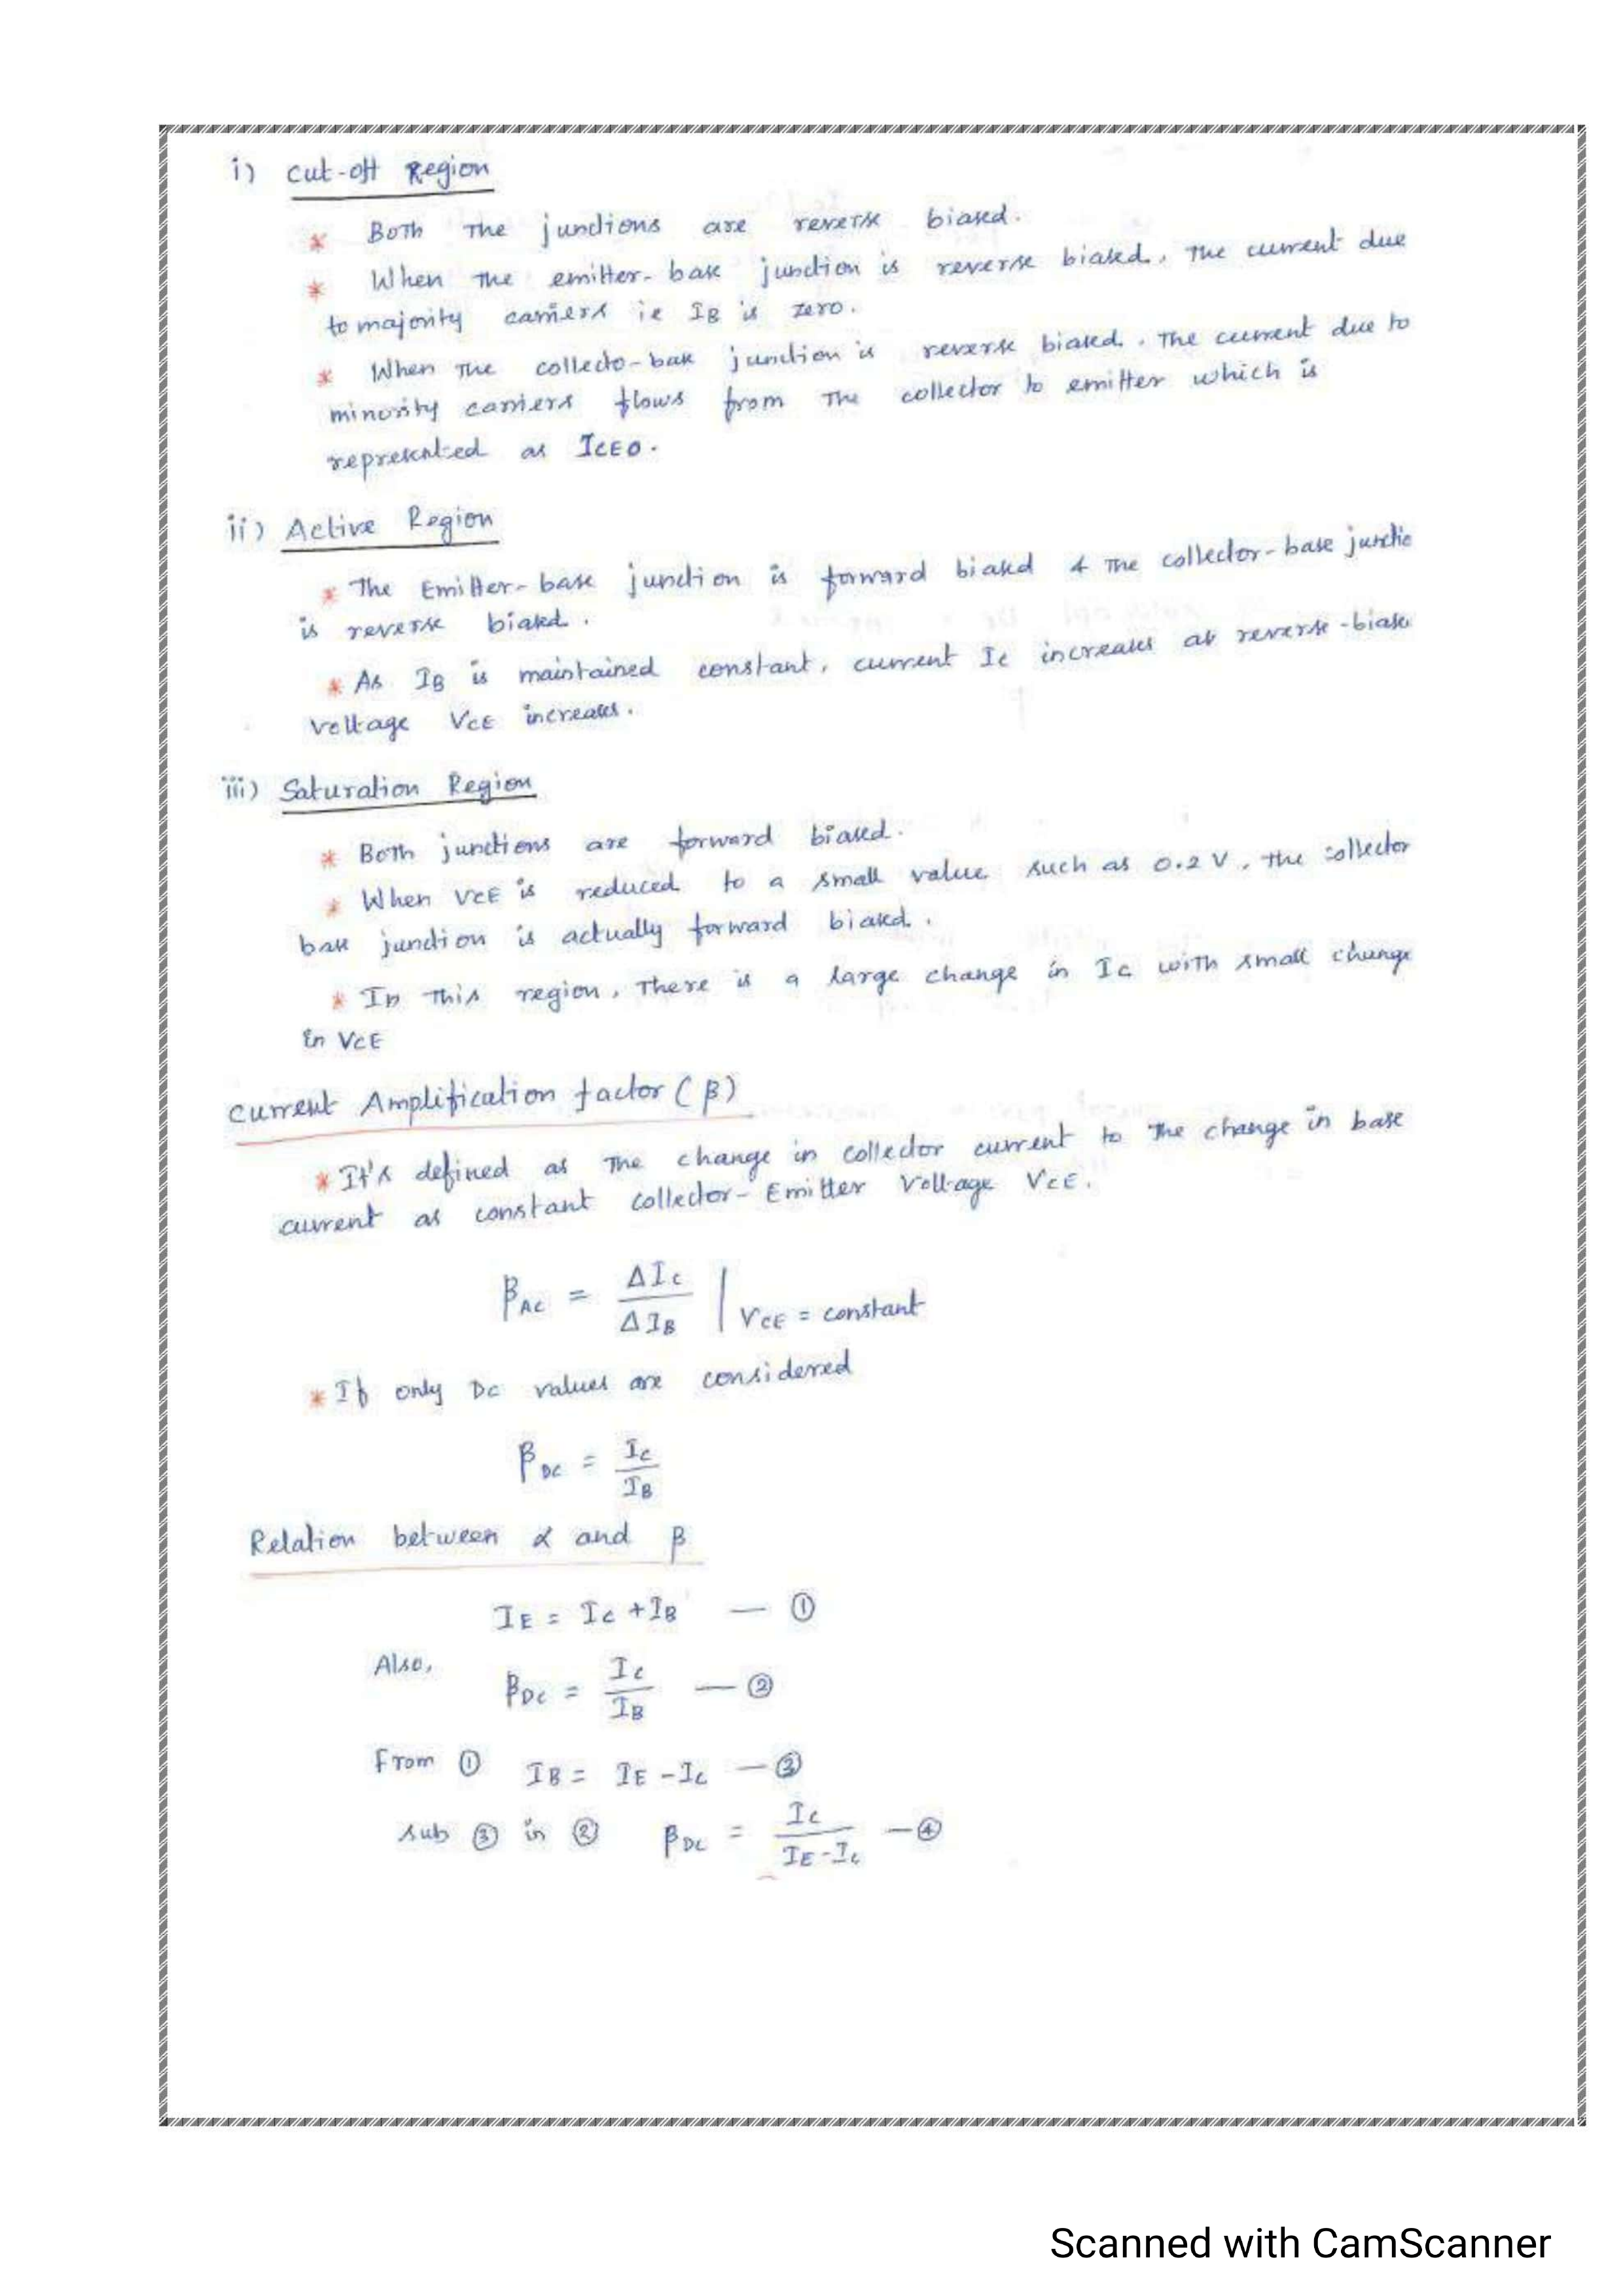 i) Cut-off Region
* Both the junctions are reverse biased.
* When the emitter-base junction is reverse biased, the current due
to majority carriers ie IB is zero.
* When the collecto-base junction is reverse biased. The current due to
minority carriers flows from the collector to emitter which is
represented as ICEO.
ii) Active Region
* The Emitter-base junction is forward biased & the collector-base junctio
is reverse biased.
* As IB is maintained constant, current Ic increases as reverse-bias
voltage VCE increases.
iii) Saturation Region
* Both junctions are forward biased.
* When VCE is reduced to a small value such as 0.2 V, the collector
base junction is actually forward biased.
* In this region, there is a large change in Ic with small change
in VCE
Current Amplification factor (β)
* It's defined as the change in collector current to the change in base
current as constant collector-Emitter Voltage VCE.
βAC = ΔIc / ΔIB | VCE = constant
* If only Dc values are considered
βDC = Ic / IB
Relation between α and β
IE = Ic + IB — ①
Also, βDC = Ic / IB — ②
From ① IB = IE - Ic — ③
sub ③ in ② βDC = Ic / IE - Ic — ④
Scanned with CamScanner